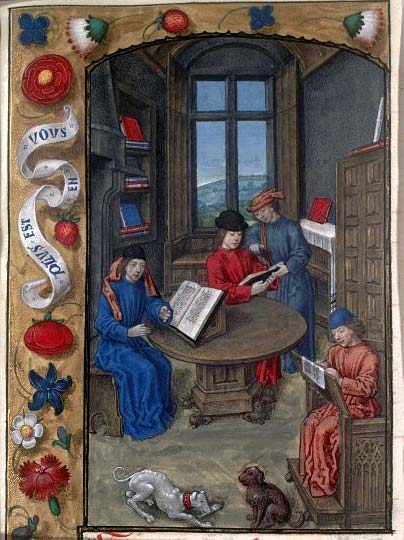 PLUS EST
EN
VOUS